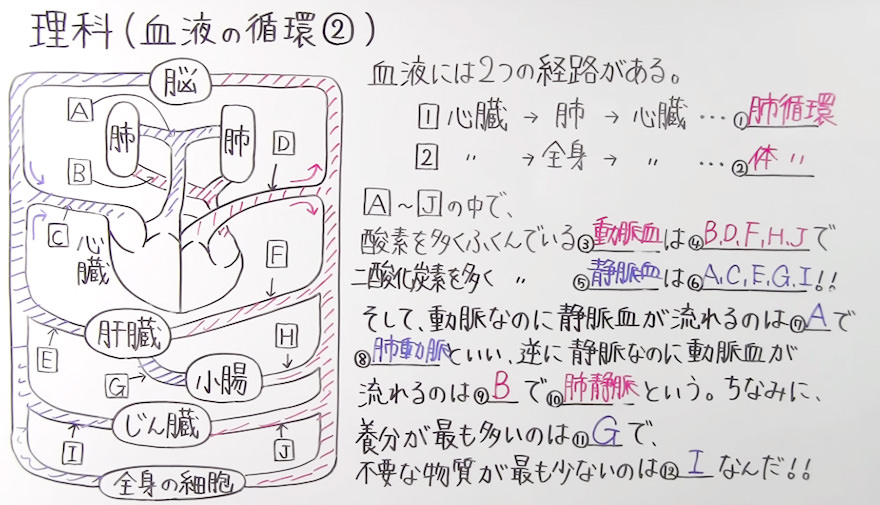 理科(血液の循環②)
脳
A
肺
肺
D
B
C
心臓
F
肝臓
E
H
G
小腸
じん臓
I
J
全身の細胞
血液には2つの経路がある。
1 心臓 → 肺 → 心臓 … ①肺循環
2 〃 → 全身 → 〃 … ②体〃
A~Jの中で、
酸素を多くふくんでいる③動脈血は④B,D,F,H,Jで
二酸化炭素を多く 〃 ⑤静脈血は⑥A,C,E,G,I!!
そして、動脈なのに静脈血が流れるのは⑦Aで
⑧肺動脈といい、逆に静脈なのに動脈血が
流れるのは⑨Bで⑩肺静脈という。ちなみに、
養分が最も多いのは⑪Gで、
不要な物質が最も少ないのは⑫Iなんだ!!